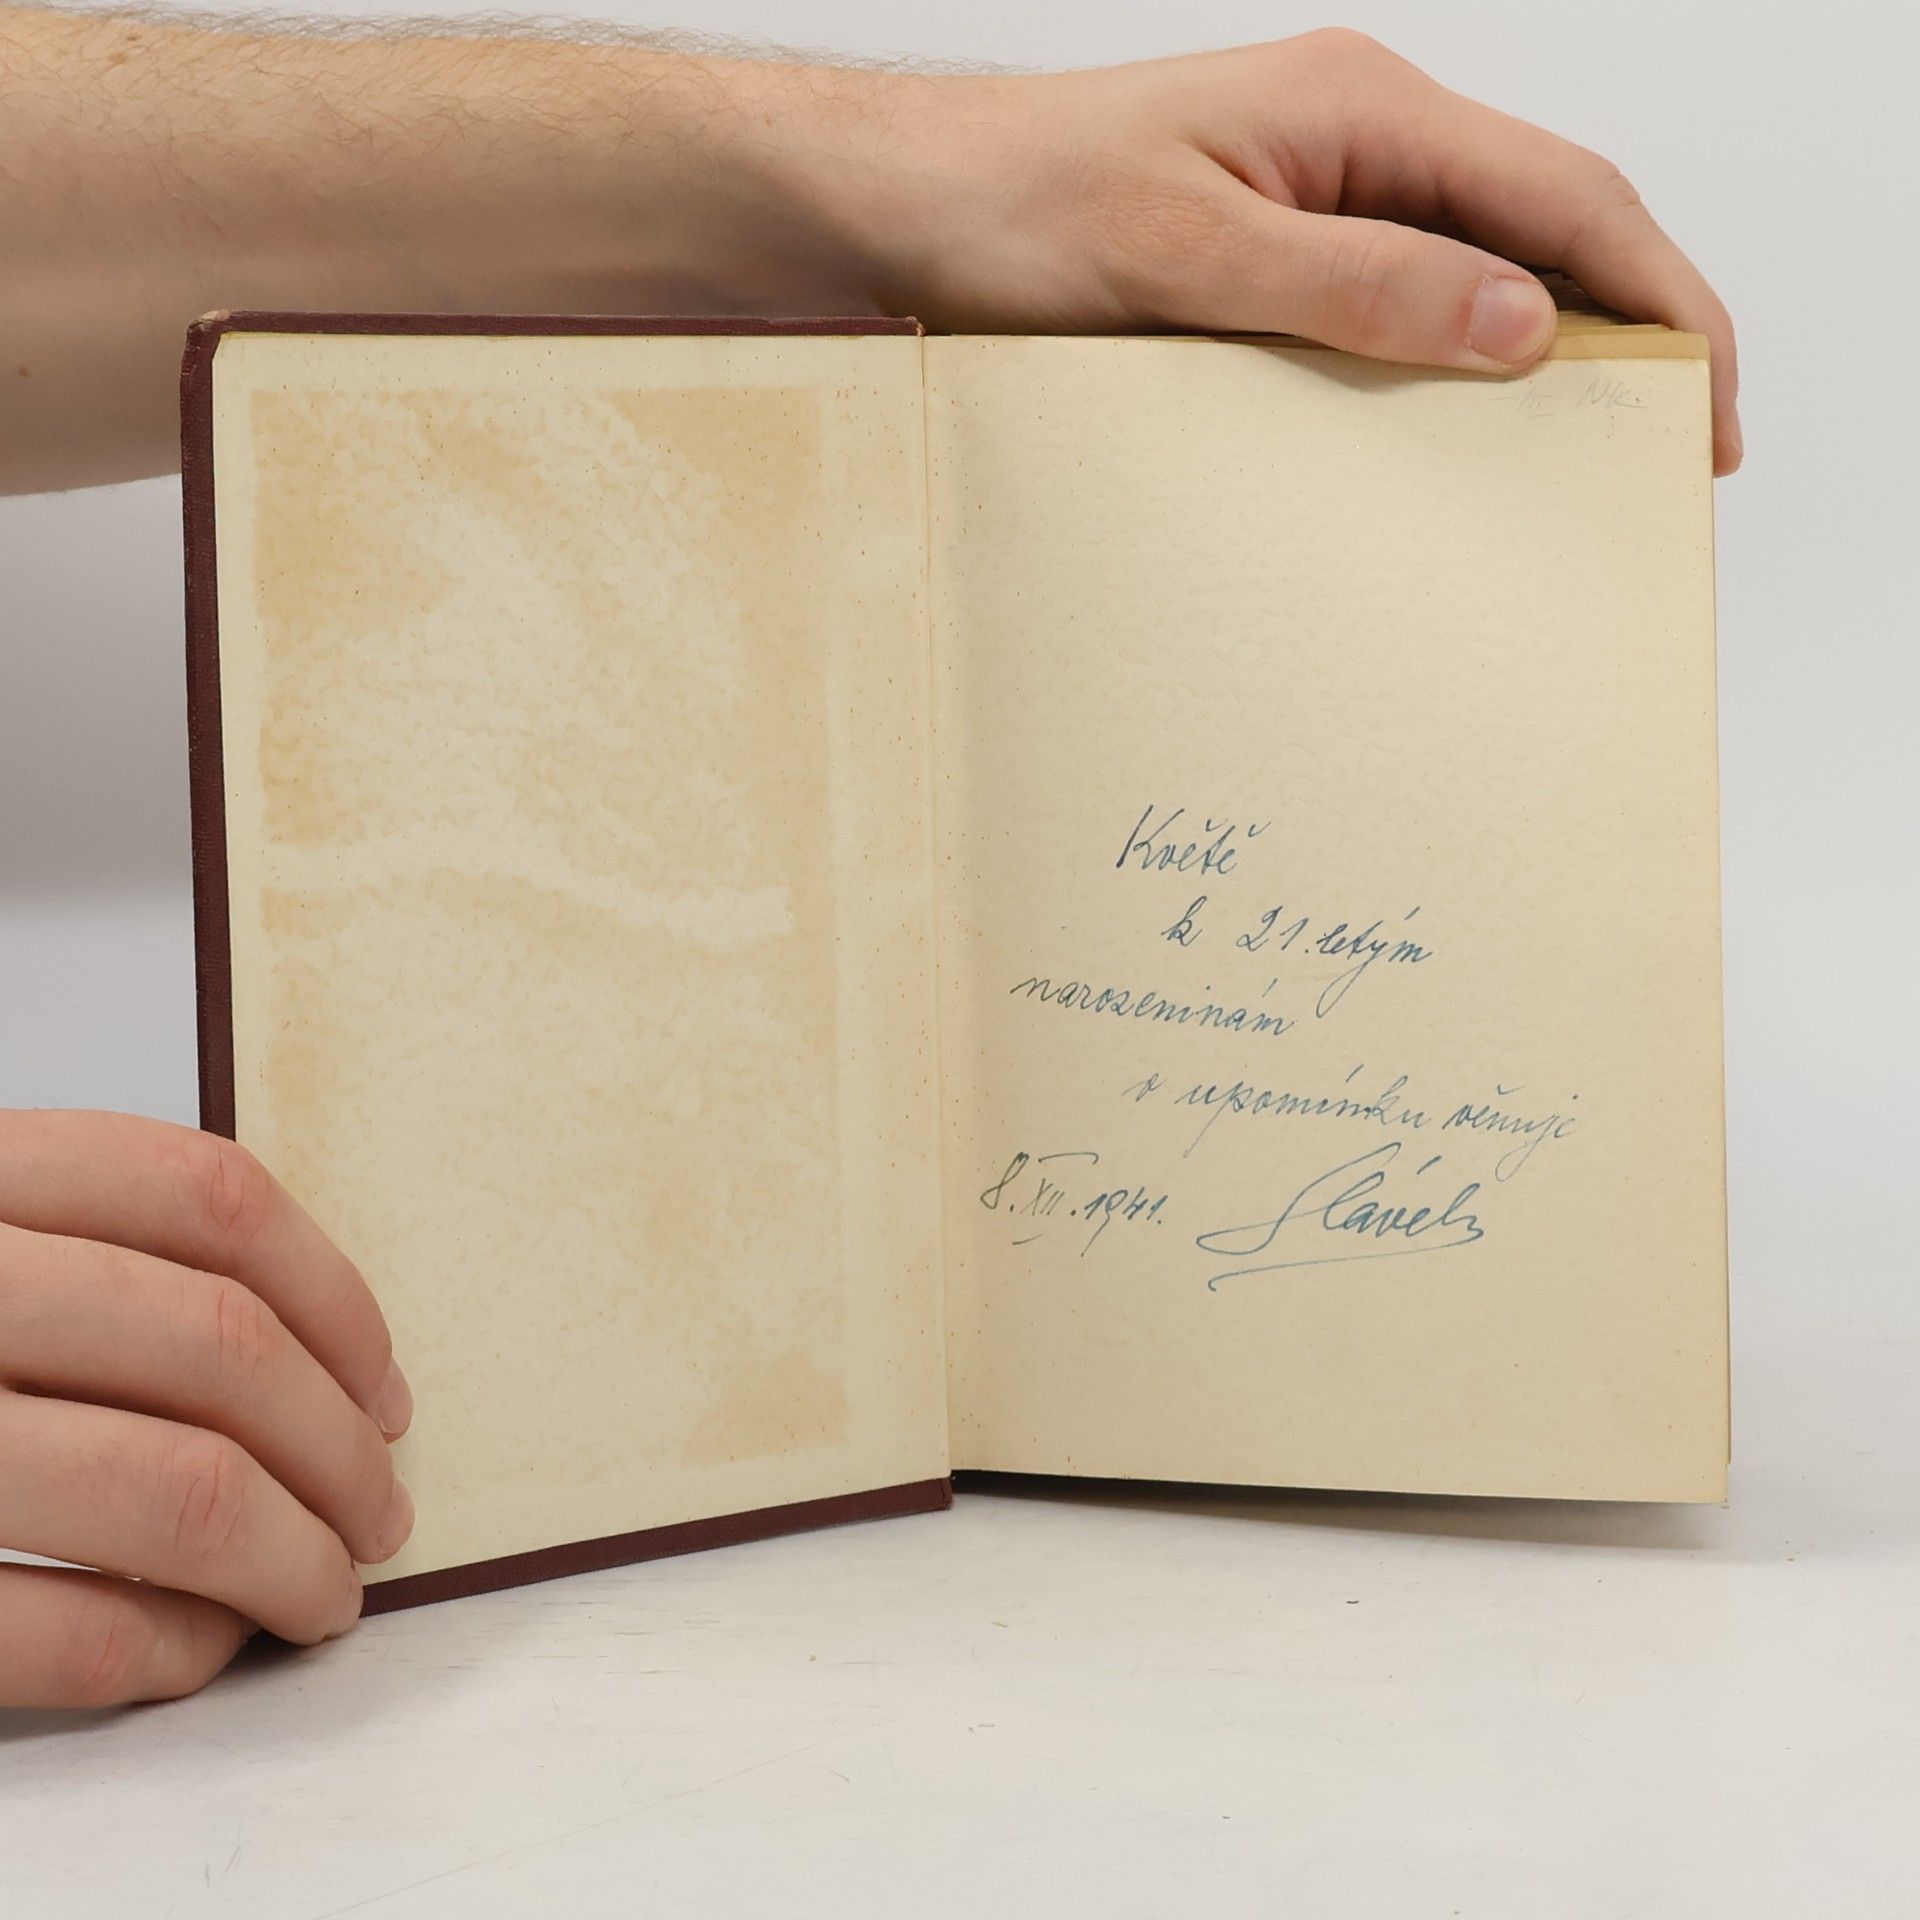 Květě
k 21.letým
narozeninám
v upomínku věnuje
8.XII.1941. Slávek